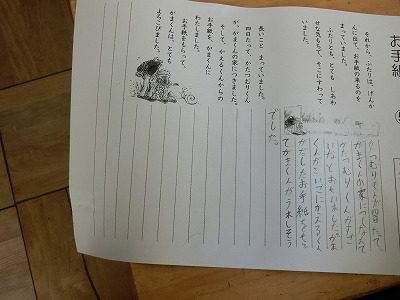 お手紙
それから、ふたりは、げんか
んに出て、お手紙の来るのを
まっていました。
ふたりとも、とても しあわ
せな気もちで、そこにすわって
いました。
長いこと まっていました。
四日たって、かたつむりくん
が、がまくんの家につきました。
そして、かえるくんからの
お手紙を、がまくんに
わたしました。
お手紙をもらって、
がまくんは、とても
よろこびました。
たって、
がまくんの家に
かたつむりくんがすご
いなとおもいました。がま
くんがさいごにかえるくん
がだしたお手紙をもらっ
てがまくんがうれしそう
でした。